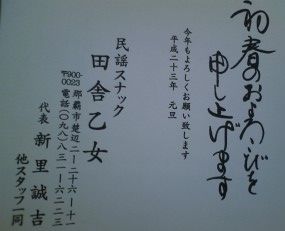 初春のおよろこびを
申し上げます
今年もよろしくお願い致します
平成二十三年　元旦
民謡スナック
田舎乙女
〒900-0023 那覇市楚辺二ー二十六ー十一
電話(〇九八)八三一ー六二二三
代表 新里誠吉
他スタッフ一同